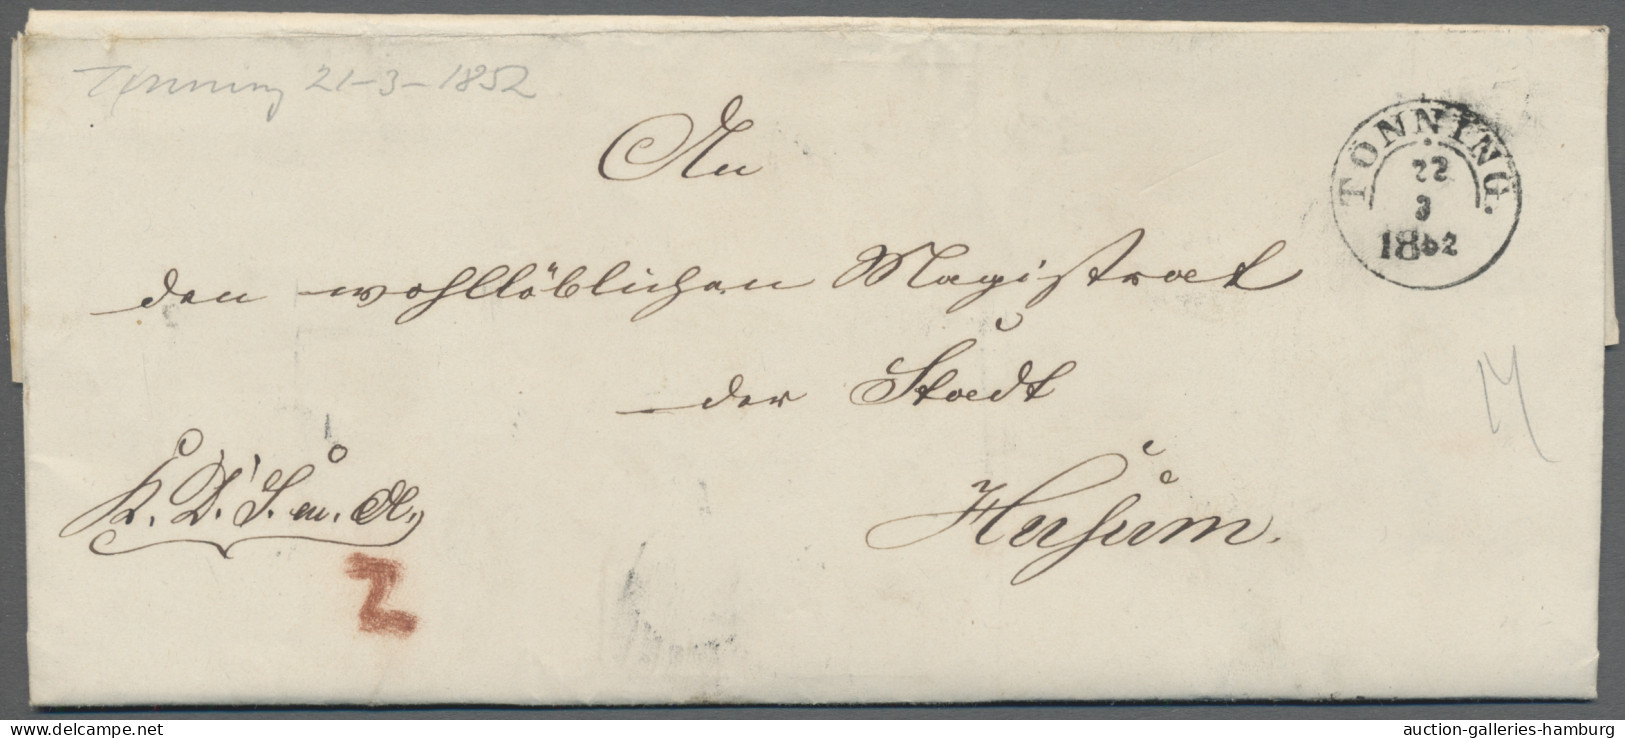 Tönning 21-3-1852
TÖNNING.
22
3
1852
An
den wohllöblichen Magistrat
der Stadt
Husum.
K. D. S. u. A.
2
auction-galleries-hamburg